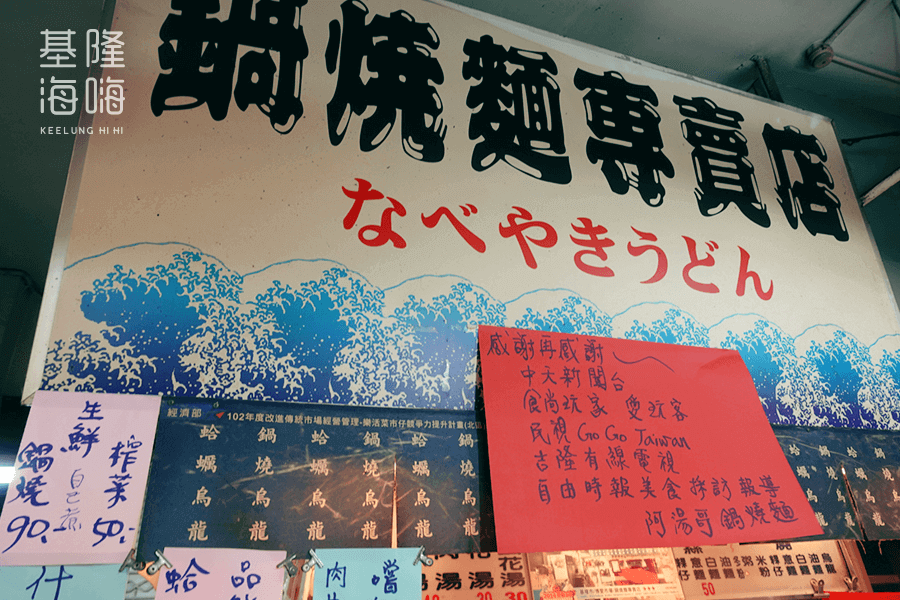 基隆
海嗨
KEELUNG HI HI
鍋燒麵專賣店
なべやきうどん
感謝再感謝
中天新聞台
食尚玩家 愛玩客
民視 GO GO Taiwan
吉隆有線電視
自由時報美食採訪報導
阿湯哥鍋燒麵
生鮮 自己煮
鍋燒 90.
榨菜 50.
經濟部
102年度改進傳統市場經營管理-樂活菜市仔競爭力提升計畫(北區
蛤蠣烏龍
鍋燒烏龍
蛤蠣烏龍
鍋燒烏龍
蛤蠣烏龍
鍋燒烏龍
什
蛤
品
肉
嚐
湯湯湯
花
30
30
50